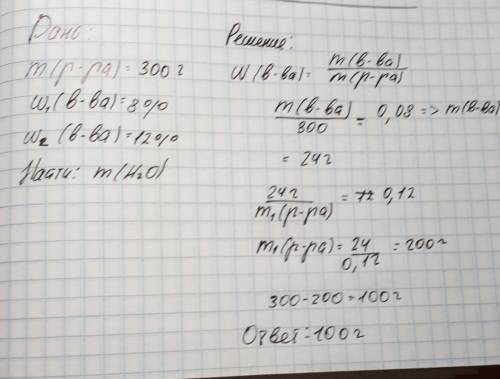 Дано:
m(р-ра) = 300 г
w₁(в-ва) = 8 %
w₂ (в-ва) = 12%
Наити: m(H₂O)
Решение:
W(в-ва) = m(в-ва)
m(р-ра)
m(в-ва)
300
= 0,08 => m(в-ва)
= 24 г
24 г
m₁(р-ра)
= 0,12
m₁(р-ра) = 24 = 200 г
0,12
300 - 200 = 100 г
Ответ: 100 г